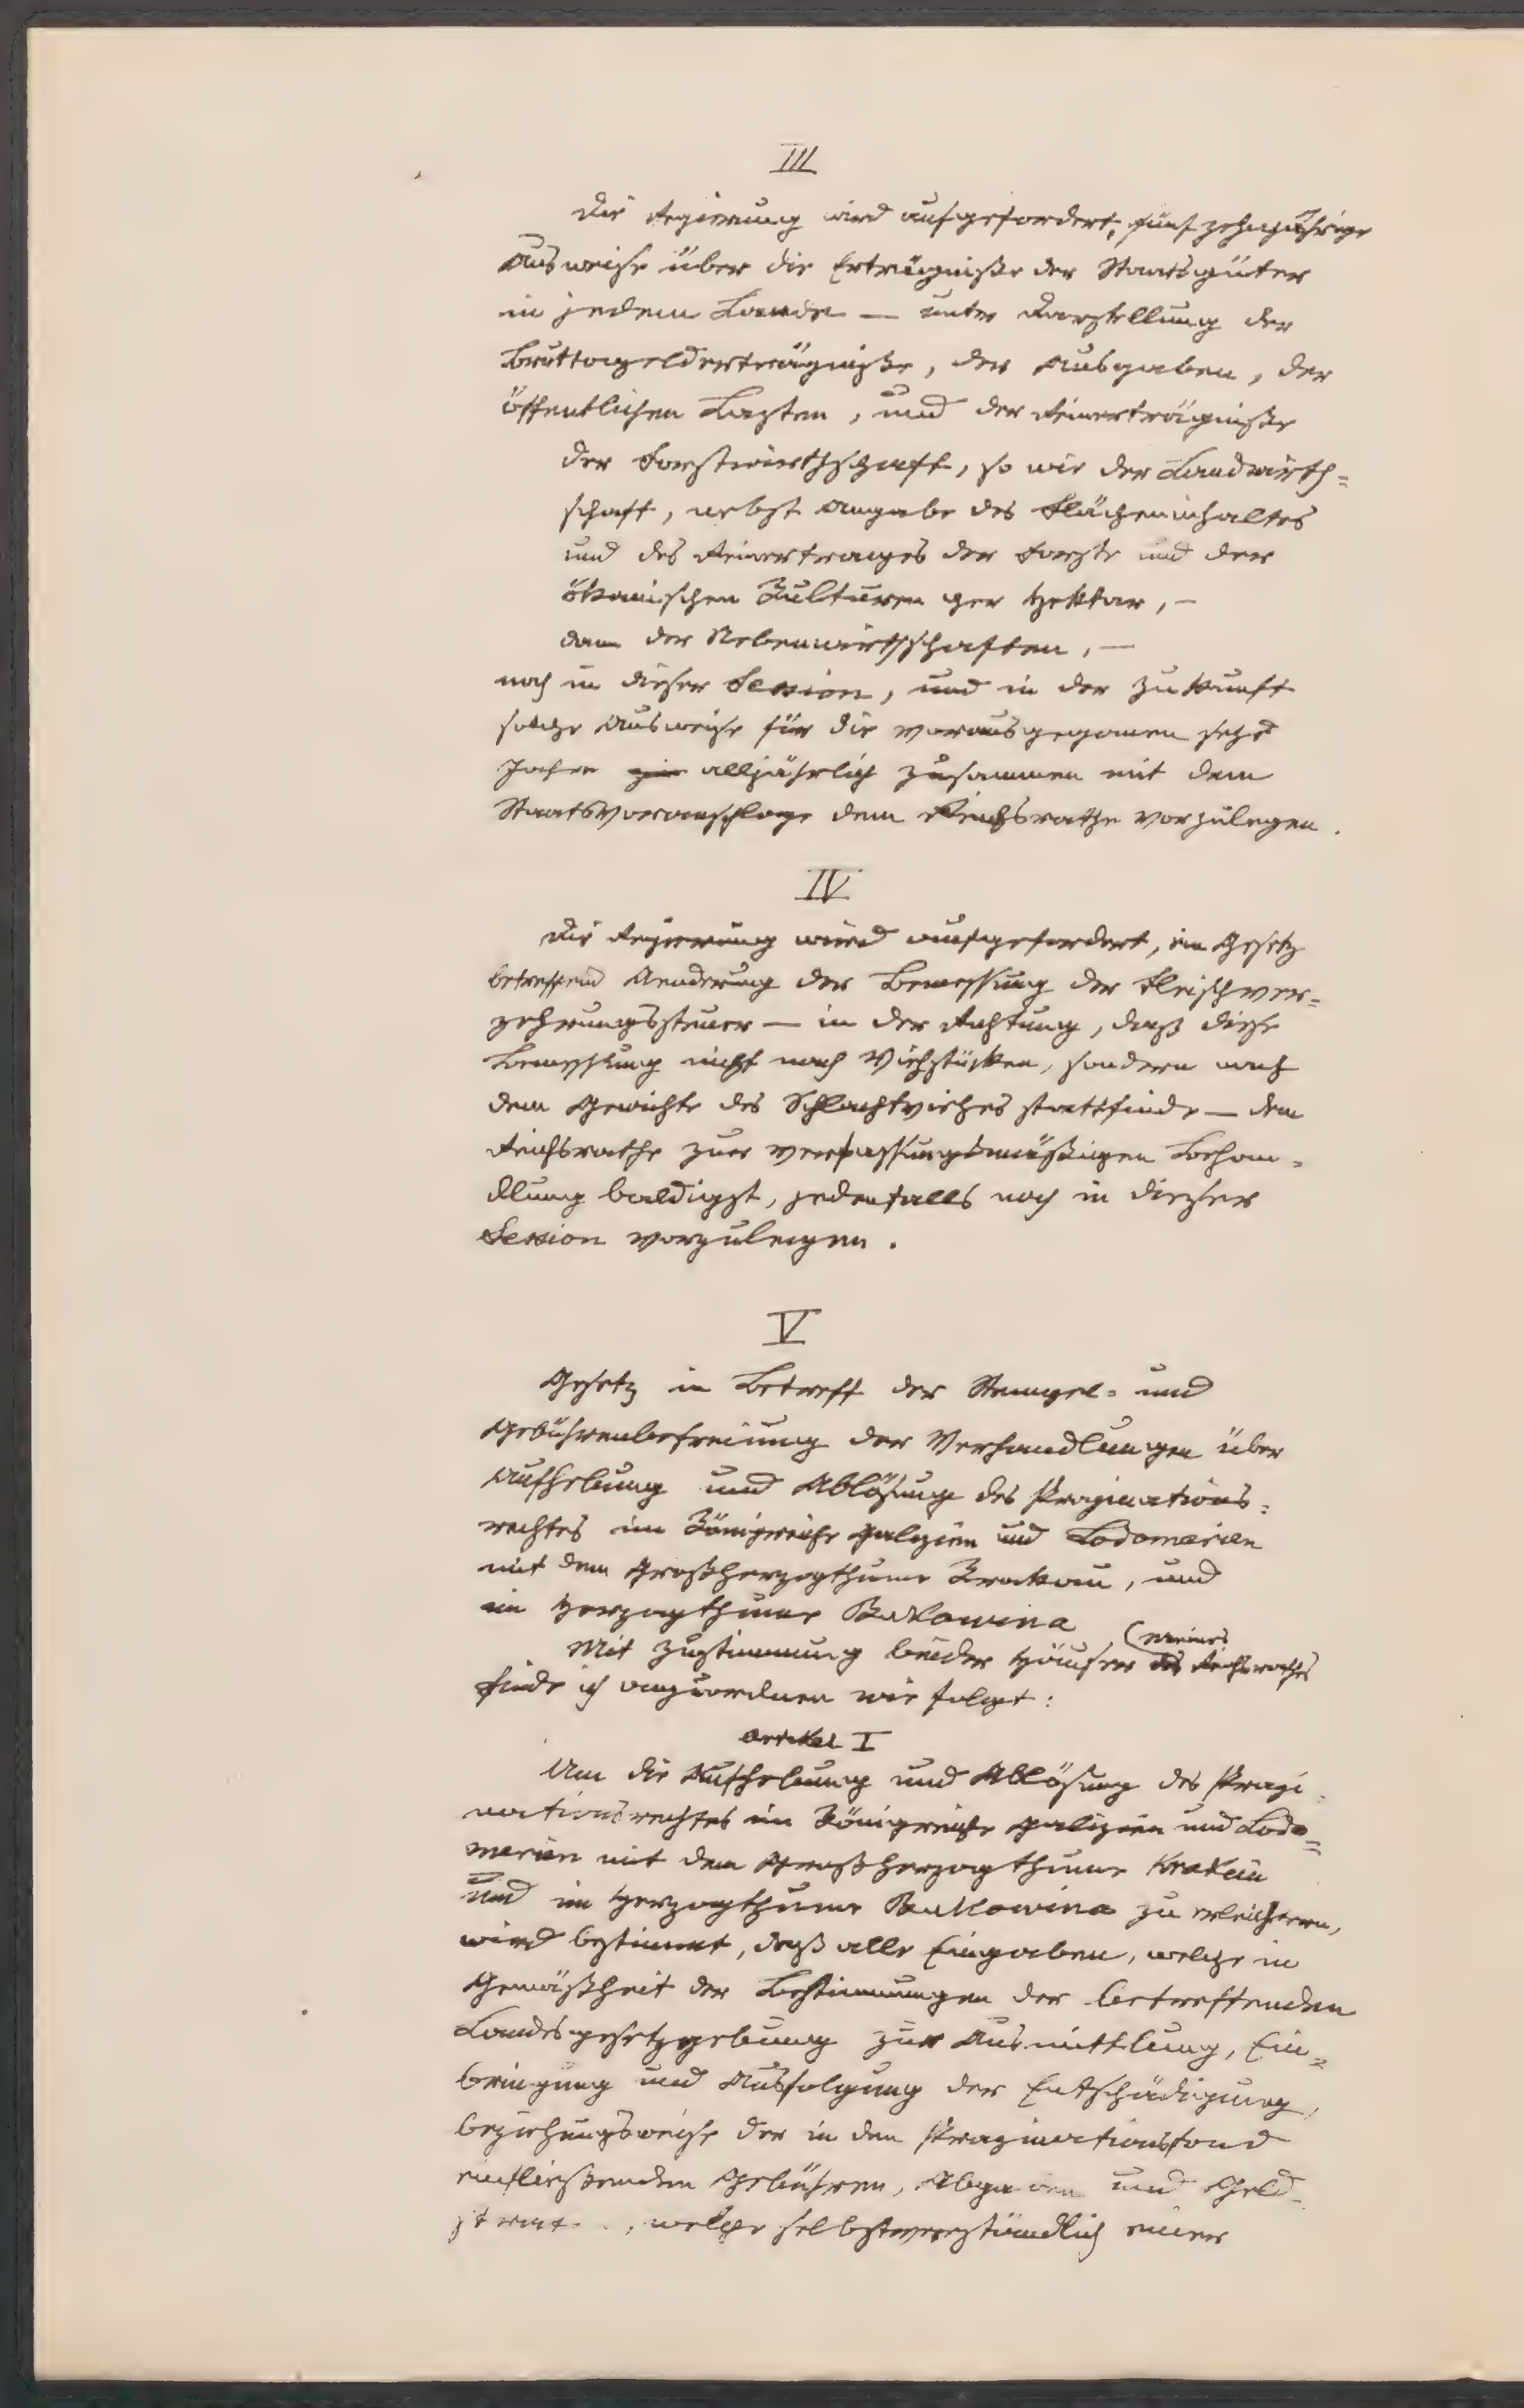 III
Die Regierung wird aufgefordert, fünf zehnjährige
Ausweise über die Erträgnisse der Staatsgüter
in jedem Lande — unter Darstellung der
Bruttogelderträgniße, der Ausgaben, der
öffentlichen Lasten, und der Reinerträgniße
der Forstwirthschaft, so wie der Landwirth=
schaft, nebst Angabe des Flächeninhaltes
und des Reinertrages der Forste und der
ökonomischen Kulturen per Hektar, —
dann der Nebenwirthschaften, —
noch in dieser Session, und in der Zukunft
solche Ausweise für die vorausgegangenen sechs
Jahre alljährlich zusammen mit dem
Staatsvoranschlage dem Reichsrathe vorzulegen.
IV
Die Regierung wird aufgefordert, ein Gesetz
betreffend Aenderung der Bemessung der Fleischver=
zehrungssteuer — in der Richtung, daß diese
Bemessung nicht nach Viehstücken, sondern nach
dem Gewichte des Schlachtviehes stattfinde — dem
Reichsrathe zur verfassungsmäßigen Behan=
dlung baldigst, jedenfalls noch in dieser
Session vorzulegen.
V
Gesetz in Betreff der Stempel= und
Gebührenbefreiung der Verhandlungen über
Aufhebung und Ablösung des Propinations=
rechtes im Königreiche Galizien und Lodomerien
mit dem Großherzogthume Krakau, und
im Herzogthume Bukowina
Mit Zustimmung beider Häuser (meines des Reichsrathes
finde ich anzuordnen wie folgt:
Artikel I
Um die Aufhebung und Ablösung des Propi=
nationsrechtes im Königreiche Galizien und Lodo=
merien mit dem Großherzogthume Krakau
und im Herzogthume Bukowina zu erleichtern,
wird bestimmt, daß alle Eingaben, welche in
Gemäßheit der Bestimmungen der betreffenden
Landesgesetzgebung zur Ausmittlung, Ein=
bringung und Ausfolgung der Entschädigung,
beziehungsweise der in den Propinationsfond
einfließenden Gebühren, Abgaben und Geld=
, welche selbstverständlich einer